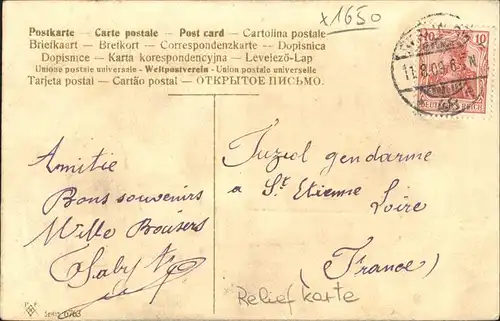 x1650
Postkarte - Carte postale - Post card - Cartolina postale
Briefkaert - Brefkort - Correspondenzkarte - Dopisnica
Dopisnice - Karta korespondencyjna - Levelező-Lap
Unione postale universale - Weltpostverein - Union postale universelle
Tarjeta postal - Cartão postal - ОТКРЫТОЕ ПИСЬМО.
10
11.8.09.6
N
DEUTSCHES REICH
Amitie
Bons souvenirs
Mille Baisers
Gaby
gendarme
a St Etienne
Loire
(France)
Reliefkarte
Serie 0763